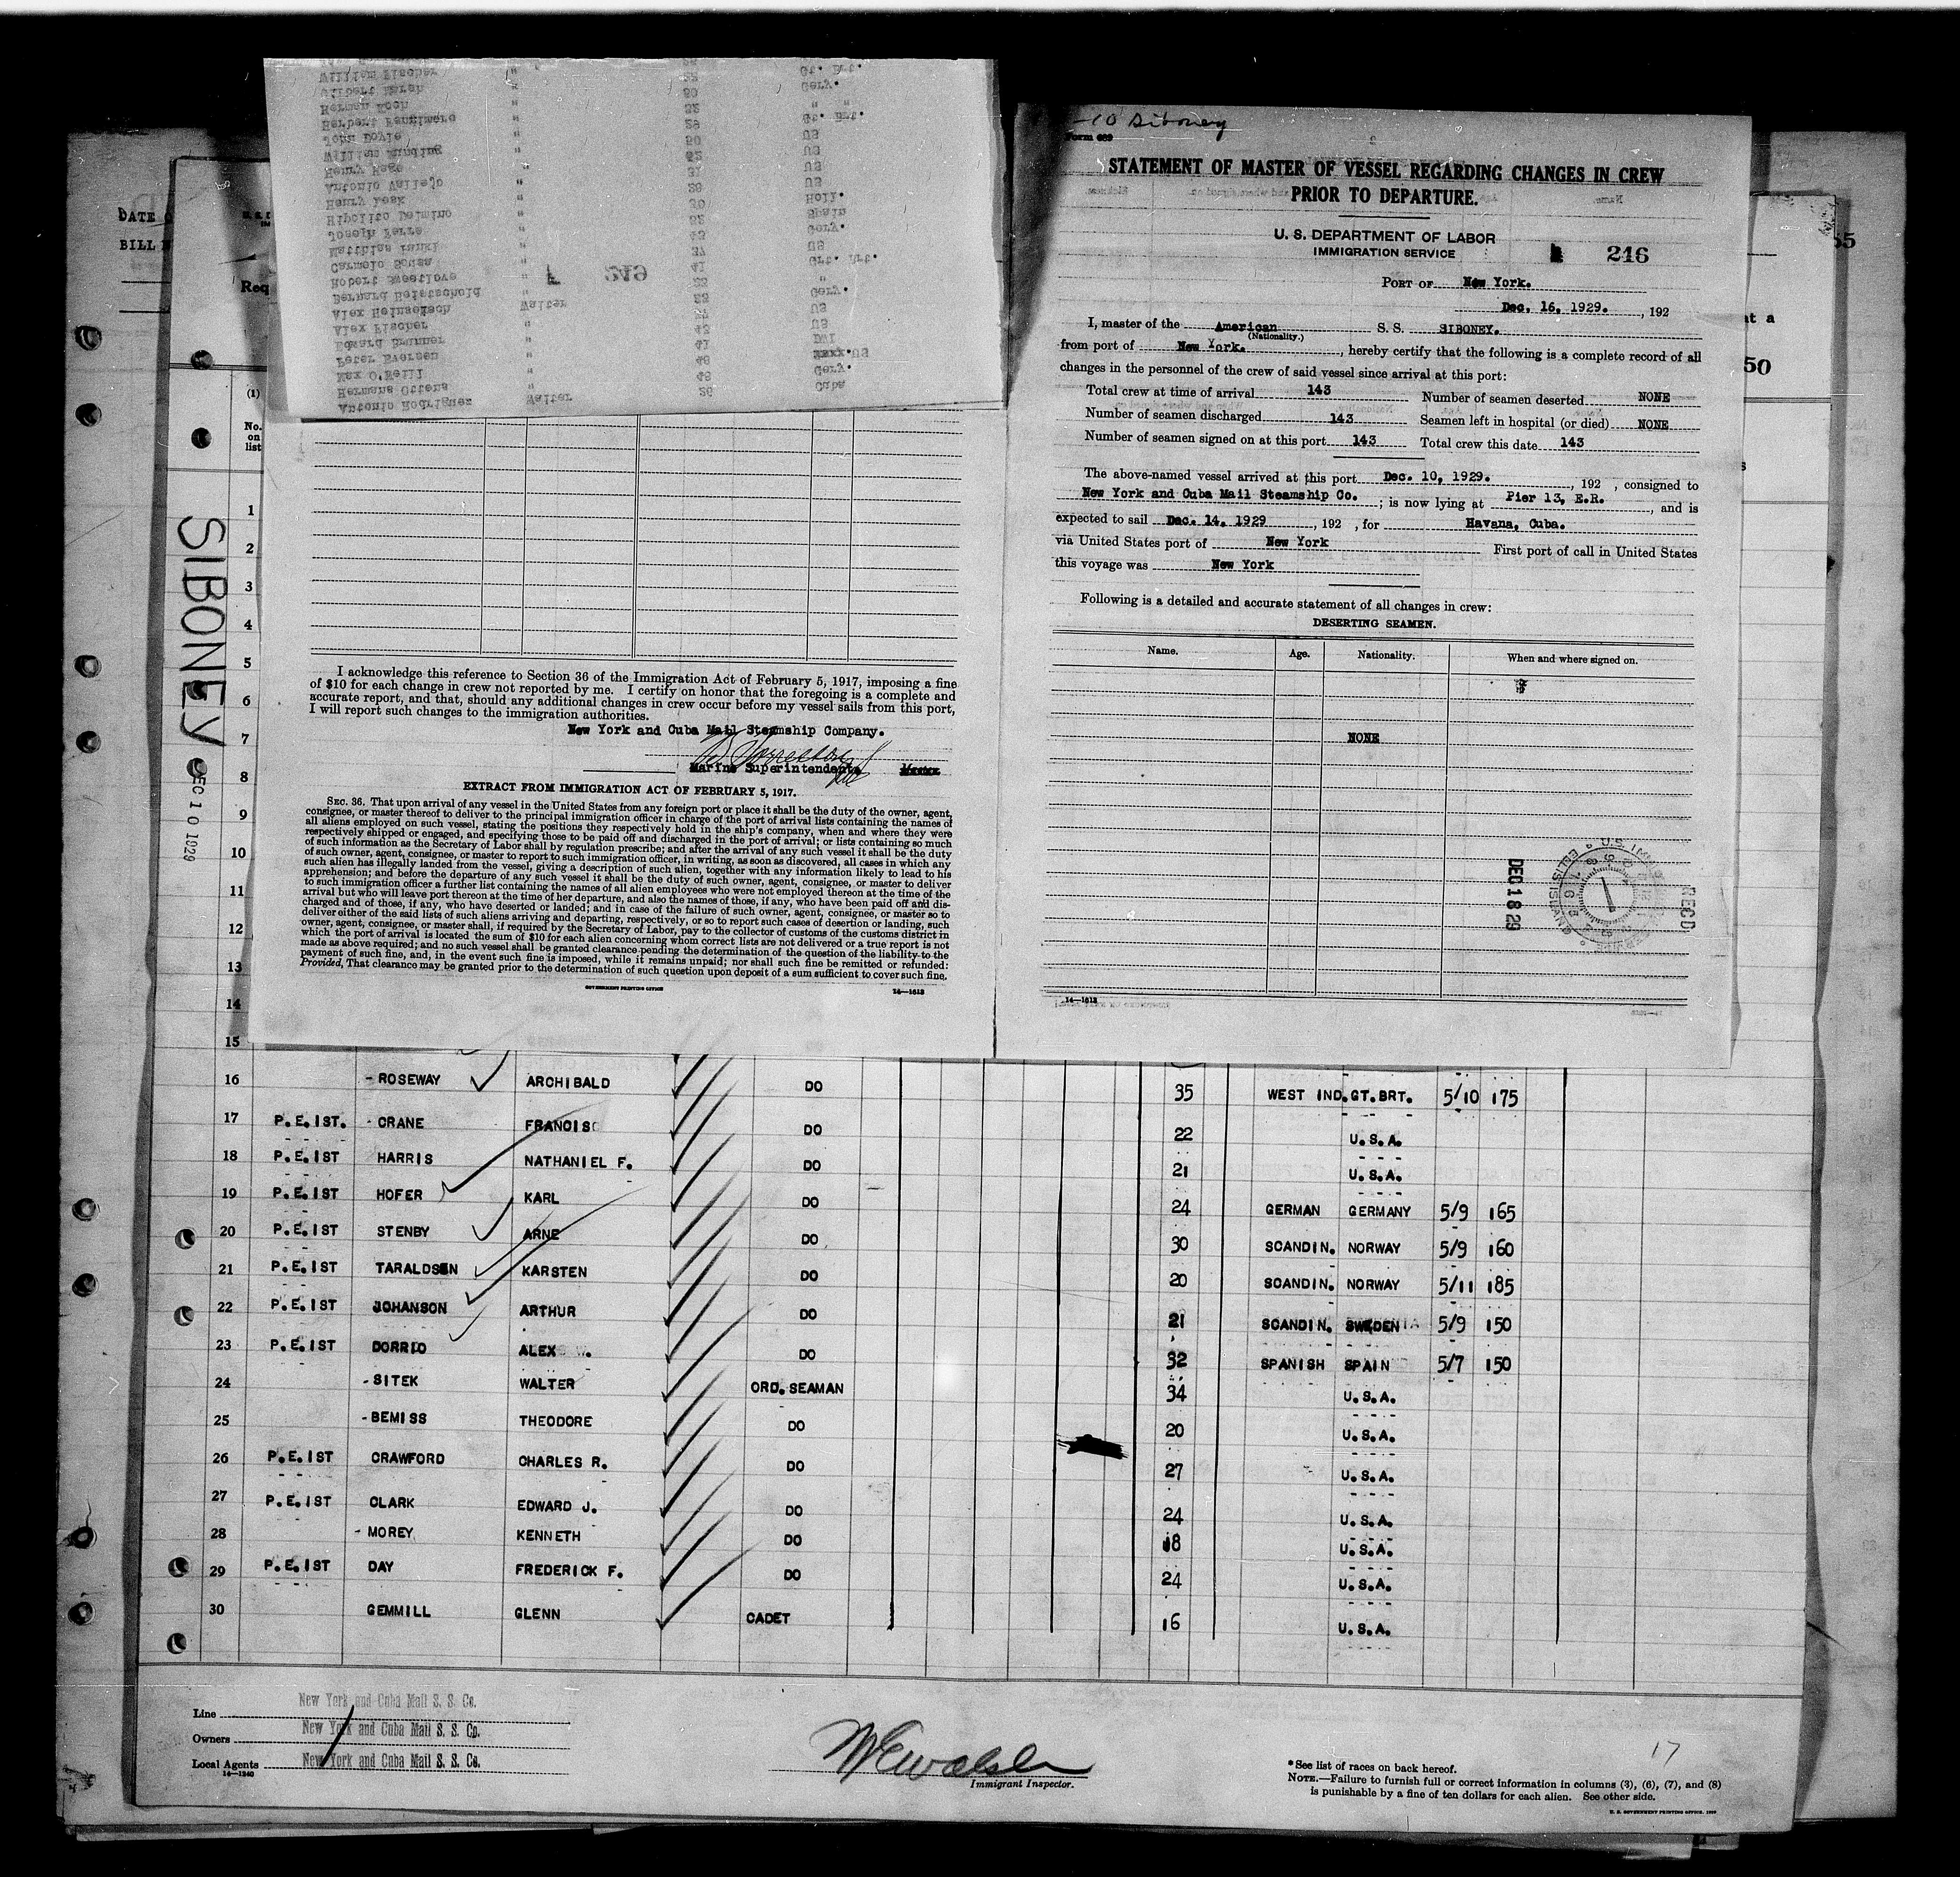 William Fischer " 27 Gt. Brt.
Gilbert Marsh " 50 Gery.
Herman Koch " 32 " "
Herbert " 29 Gt. Brt.
John Doyle " 50 US
William Munding " 52 US
Henry Hage " 31 US
Antonio Vallejo " US
Henry Leak " 30 Holl.
Hipolito " 52 Spain
Joseph " 43 Gery.
Matthias " 37 US
Carmelo Sousa " 41 Grt. Brt.
Robert Sweetlove " 23 "
Bernard " 23 Gery.
Alex Walter US
Alex Fischer " 43 US
Edward Brunner " 41
Peter Eversen " 46 US
Max O'Neill " 46 Gery.
Hermans Ottens " Cuba
Antonio Rodriguez Walter 26
249
DATE
BILL
Req
(1)
No. on list
SIBONEY
DEC 10 1929
I acknowledge this reference to Section 36 of the Immigration Act of February 5, 1917, imposing a fine
of $10 for each change in crew not reported by me. I certify on honor that the foregoing is a complete and
accurate report, and that, should any additional changes in crew occur before my vessel sails from this port,
I will report such changes to the immigration authorities.
New York and Cuba Mail Steamship Company.
Marine Superintendent
EXTRACT FROM IMMIGRATION ACT OF FEBRUARY 5, 1917.
SEC. 36. That upon arrival of any vessel in the United States from any foreign port or place it shall be the duty of the owner, agent,
consignee, or master thereof to deliver to the principal immigration officer in charge of the port of arrival lists containing the names of
all aliens employed on such vessel, stating the positions they respectively hold in the ship's company, when and where they were
respectively shipped or engaged, and specifying those to be paid off and discharged in the port of arrival; or lists containing so much
of such information as the Secretary of Labor shall by regulation prescribe; and after the arrival of any such vessel it shall be the duty
of such owner, agent, consignee, or master to report to such immigration officer, in writing, as soon as discovered, all cases in which any
such alien has illegally landed from the vessel, giving a description of such alien, together with any information likely to lead to his
apprehension; and before the departure of any such vessel it shall be the duty of such owner, agent, consignee, or master to deliver
to such immigration officer a further list containing the names of all alien employees who were not employed thereon at the time of the
arrival but who will leave port thereon at the time of her departure, and also the names of those, if any, who have been paid off and dis-
charged and of those, if any, who have deserted or landed; and in case of the failure of such owner, agent, consignee, or master so to
deliver either of the said lists of such aliens arriving and departing, respectively, or so to report such cases of desertion or landing, such
owner, agent, consignee, or master shall, if required by the Secretary of Labor, pay to the collector of customs of the customs district in
which the port of arrival is located the sum of $10 for each alien concerning whom correct lists are not delivered or a true report is not
made as above required; and no such vessel shall be granted clearance pending the determination of the question of the liability to the
payment of such fine, and, in the event such fine is imposed, while it remains unpaid; nor shall such fine be remitted or refunded:
Provided, That clearance may be granted prior to the determination of such question upon deposit of a sum sufficient to cover such fine.
GOVERNMENT PRINTING OFFICE 14—1613
-10 Siboney
Form 689
STATEMENT OF MASTER OF VESSEL REGARDING CHANGES IN CREW
PRIOR TO DEPARTURE.
U. S. DEPARTMENT OF LABOR
IMMIGRATION SERVICE
246
PORT OF New York.
Dec. 16, 1929. , 192
I, master of the American S. S. SIBONEY.
(Nationality.)
from port of New York. , hereby certify that the following is a complete record of all
changes in the personnel of the crew of said vessel since arrival at this port:
Total crew at time of arrival 143 Number of seamen deserted NONE
Number of seamen discharged 143 Seamen left in hospital (or died) NONE
Number of seamen signed on at this port 143 Total crew this date 143
The above-named vessel arrived at this port Dec. 10, 1929. , 192 , consigned to
New York and Cuba Mail Steamship Co. ; is now lying at Pier 13, E.R. , and is
expected to sail Dec. 14, 1929 , 192 , for Havana, Cuba.
via United States port of New York First port of call in United States
this voyage was New York
Following is a detailed and accurate statement of all changes in crew:
DESERTING SEAMEN.
Name. Age. Nationality. When and where signed on.
NONE
DEC 18 29
REC'D
14—1613
55
at a
50
1
2
3
4
5
6
7
8
9
10
11
12
13
14
15
16 - ROSEWAY ARCHIBALD DO 35 WEST IND. GT. BRT. 5/10 175
17 P.E.IST. - CRANE FRANCIS DO 22 U.S.A.
18 P.E.IST HARRIS NATHANIEL F. DO 21 U.S.A.
19 P.E.IST HOFER KARL DO 24 GERMAN GERMANY 5/9 165
20 P.E.IST STENBY ARNE DO 30 SCANDIN. NORWAY 5/9 160
21 P.E.IST TARALDSEN KARSTEN DO 20 SCANDIN. NORWAY 5/11 185
22 P.E.IST JOHANSON ARTHUR DO 21 SCANDIN. SWEDEN 5/9 150
23 P.E.IST DORRIO ALEX DO 32 SPANISH SPAIN 5/7 150
24 - SITEK WALTER ORD. SEAMAN 34 U.S.A.
25 - BEMISS THEODORE DO 20 U.S.A.
26 P.E.IST CRAWFORD CHARLES R. DO 27 U.S.A.
27 P.E.IST CLARK EDWARD J. DO 24 U.S.A.
28 - MOREY KENNETH DO 18 U.S.A.
29 P.E.IST DAY FREDERICK F. DO 24 U.S.A.
30 GEMMILL GLENN CADET 16 U.S.A.
Line New York and Cuba Mail S. S. Co.
Owners New York and Cuba Mail S. S. Co.
Local Agents New York and Cuba Mail S. S. Co.
14—1240
W E Walsh
Immigrant Inspector.
17
* See list of races on back hereof.
NOTE.—Failure to furnish full or correct information in columns (3), (6), (7), and (8)
is punishable by a fine of ten dollars for each alien. See other side.
U. S. GOVERNMENT PRINTING OFFICE: 1929